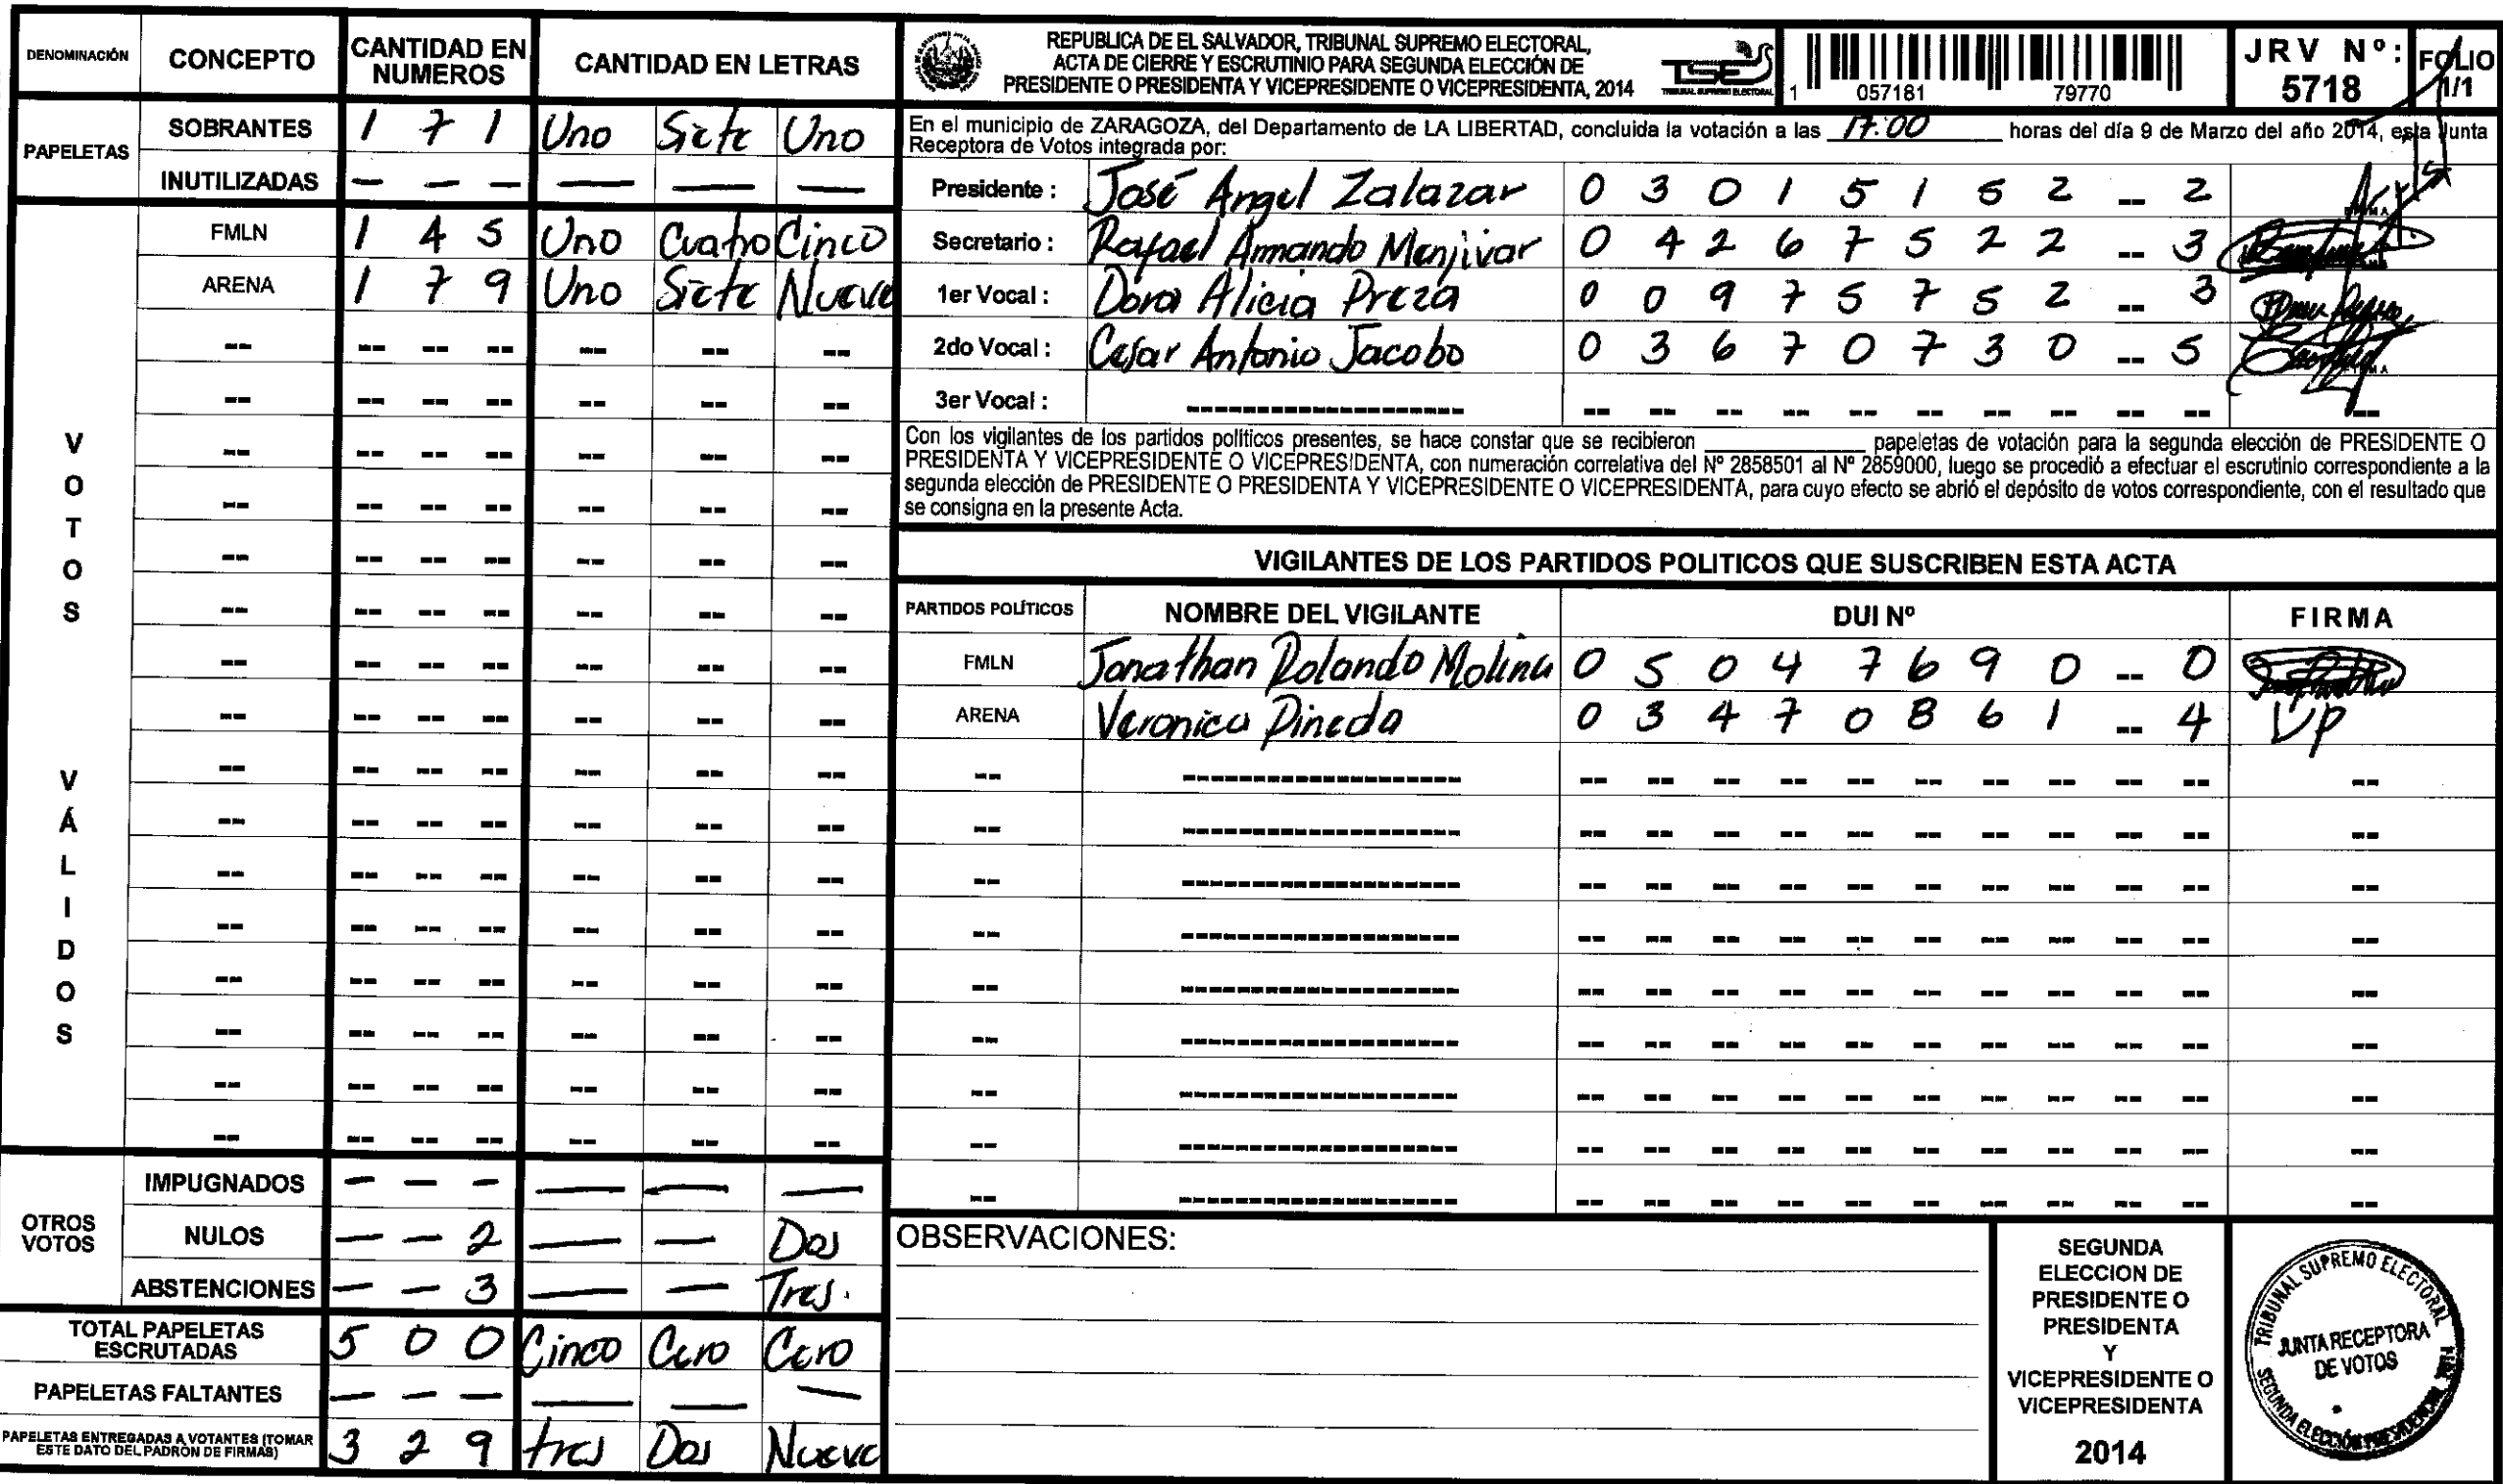 DENOMINACIÓN CONCEPTO CANTIDAD EN NUMEROS CANTIDAD EN LETRAS
PAPELETAS
SOBRANTES 1 7 1 Uno Siete Uno
INUTILIZADAS — — — — — —
VOTOS VÁLIDOS
FMLN 1 4 5 Uno Cuatro Cinco
ARENA 1 7 9 Uno Siete Nueve
OTROS VOTOS
IMPUGNADOS — — — — — —
NULOS — — 2 — — Dos
ABSTENCIONES — — 3 — — Tres.
TOTAL PAPELETAS ESCRUTADAS 5 0 0 Cinco Cero Cero
PAPELETAS FALTANTES — — — — — —
PAPELETAS ENTREGADAS A VOTANTES (TOMAR ESTE DATO DEL PADRÓN DE FIRMAS) 3 2 9 tres Dos Nueve
REPUBLICA DE EL SALVADOR, TRIBUNAL SUPREMO ELECTORAL,
ACTA DE CIERRE Y ESCRUTINIO PARA SEGUNDA ELECCIÓN DE
PRESIDENTE O PRESIDENTA Y VICEPRESIDENTE O VICEPRESIDENTA, 2014
TSE
TRIBUNAL SUPREMO ELECTORAL
1 057181 79770
JRV Nº: 5718
FOLIO 1/1
En el municipio de ZARAGOZA, del Departamento de LA LIBERTAD, concluida la votación a las 17:00 horas del día 9 de Marzo del año 2014, esta Junta
Receptora de Votos integrada por:
Presidente : José Angel Zalazar 0 3 0 1 5 1 5 2 -- 2
Secretario : Rafael Armando Menjivar 0 4 2 6 7 5 2 2 -- 3
1er Vocal : Dora Alicia Preza 0 0 9 7 5 7 5 2 -- 3
2do Vocal : Cesar Antonio Jacobo 0 3 6 7 0 7 3 0 -- 5
3er Vocal : --------------------
Con los vigilantes de los partidos políticos presentes, se hace constar que se recibieron ________ papeletas de votación para la segunda elección de PRESIDENTE O
PRESIDENTA Y VICEPRESIDENTE O VICEPRESIDENTA, con numeración correlativa del Nº 2858501 al Nº 2859000, luego se procedió a efectuar el escrutinio correspondiente a la
segunda elección de PRESIDENTE O PRESIDENTA Y VICEPRESIDENTE O VICEPRESIDENTA, para cuyo efecto se abrió el depósito de votos correspondiente, con el resultado que
se consigna en la presente Acta.
VIGILANTES DE LOS PARTIDOS POLITICOS QUE SUSCRIBEN ESTA ACTA
PARTIDOS POLÍTICOS NOMBRE DEL VIGILANTE DUI Nº FIRMA
FMLN Jonathan Rolando Molina 0 5 0 4 7 6 9 0 -- 0
ARENA Veronica Pineda 0 3 4 7 0 8 6 1 -- 4 VP
OBSERVACIONES:
SEGUNDA
ELECCION DE
PRESIDENTE O
PRESIDENTA
Y
VICEPRESIDENTE O
VICEPRESIDENTA
2014
TRIBUNAL SUPREMO ELECTORAL
JUNTA RECEPTORA
DE VOTOS
SEGUNDA ELECCIÓN PRESIDENCIAL